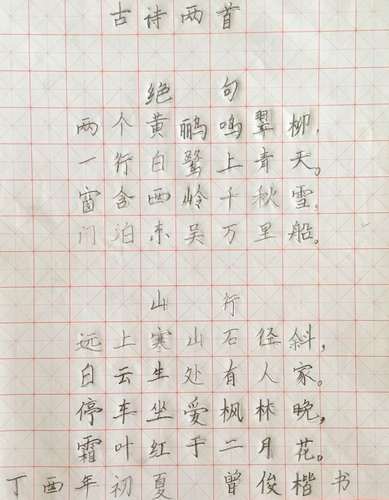 古诗两首
绝句
两个黄鹂鸣翠柳,
一行白鹭上青天。
窗含西岭千秋雪,
门泊东吴万里船。
山行
远上寒山石径斜,
白云生处有人家。
停车坐爱枫林晚,
霜叶红于二月花。
丁酉年初夏 曾俊楷书